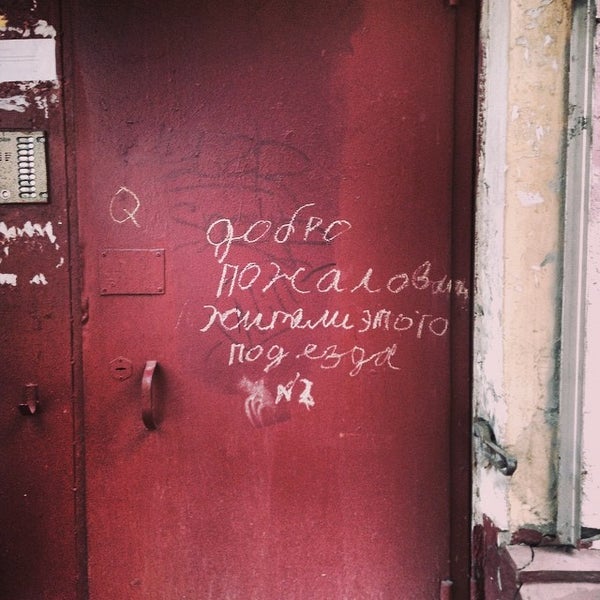 Q
добро
пожаловать
жители этого
подезда
№2